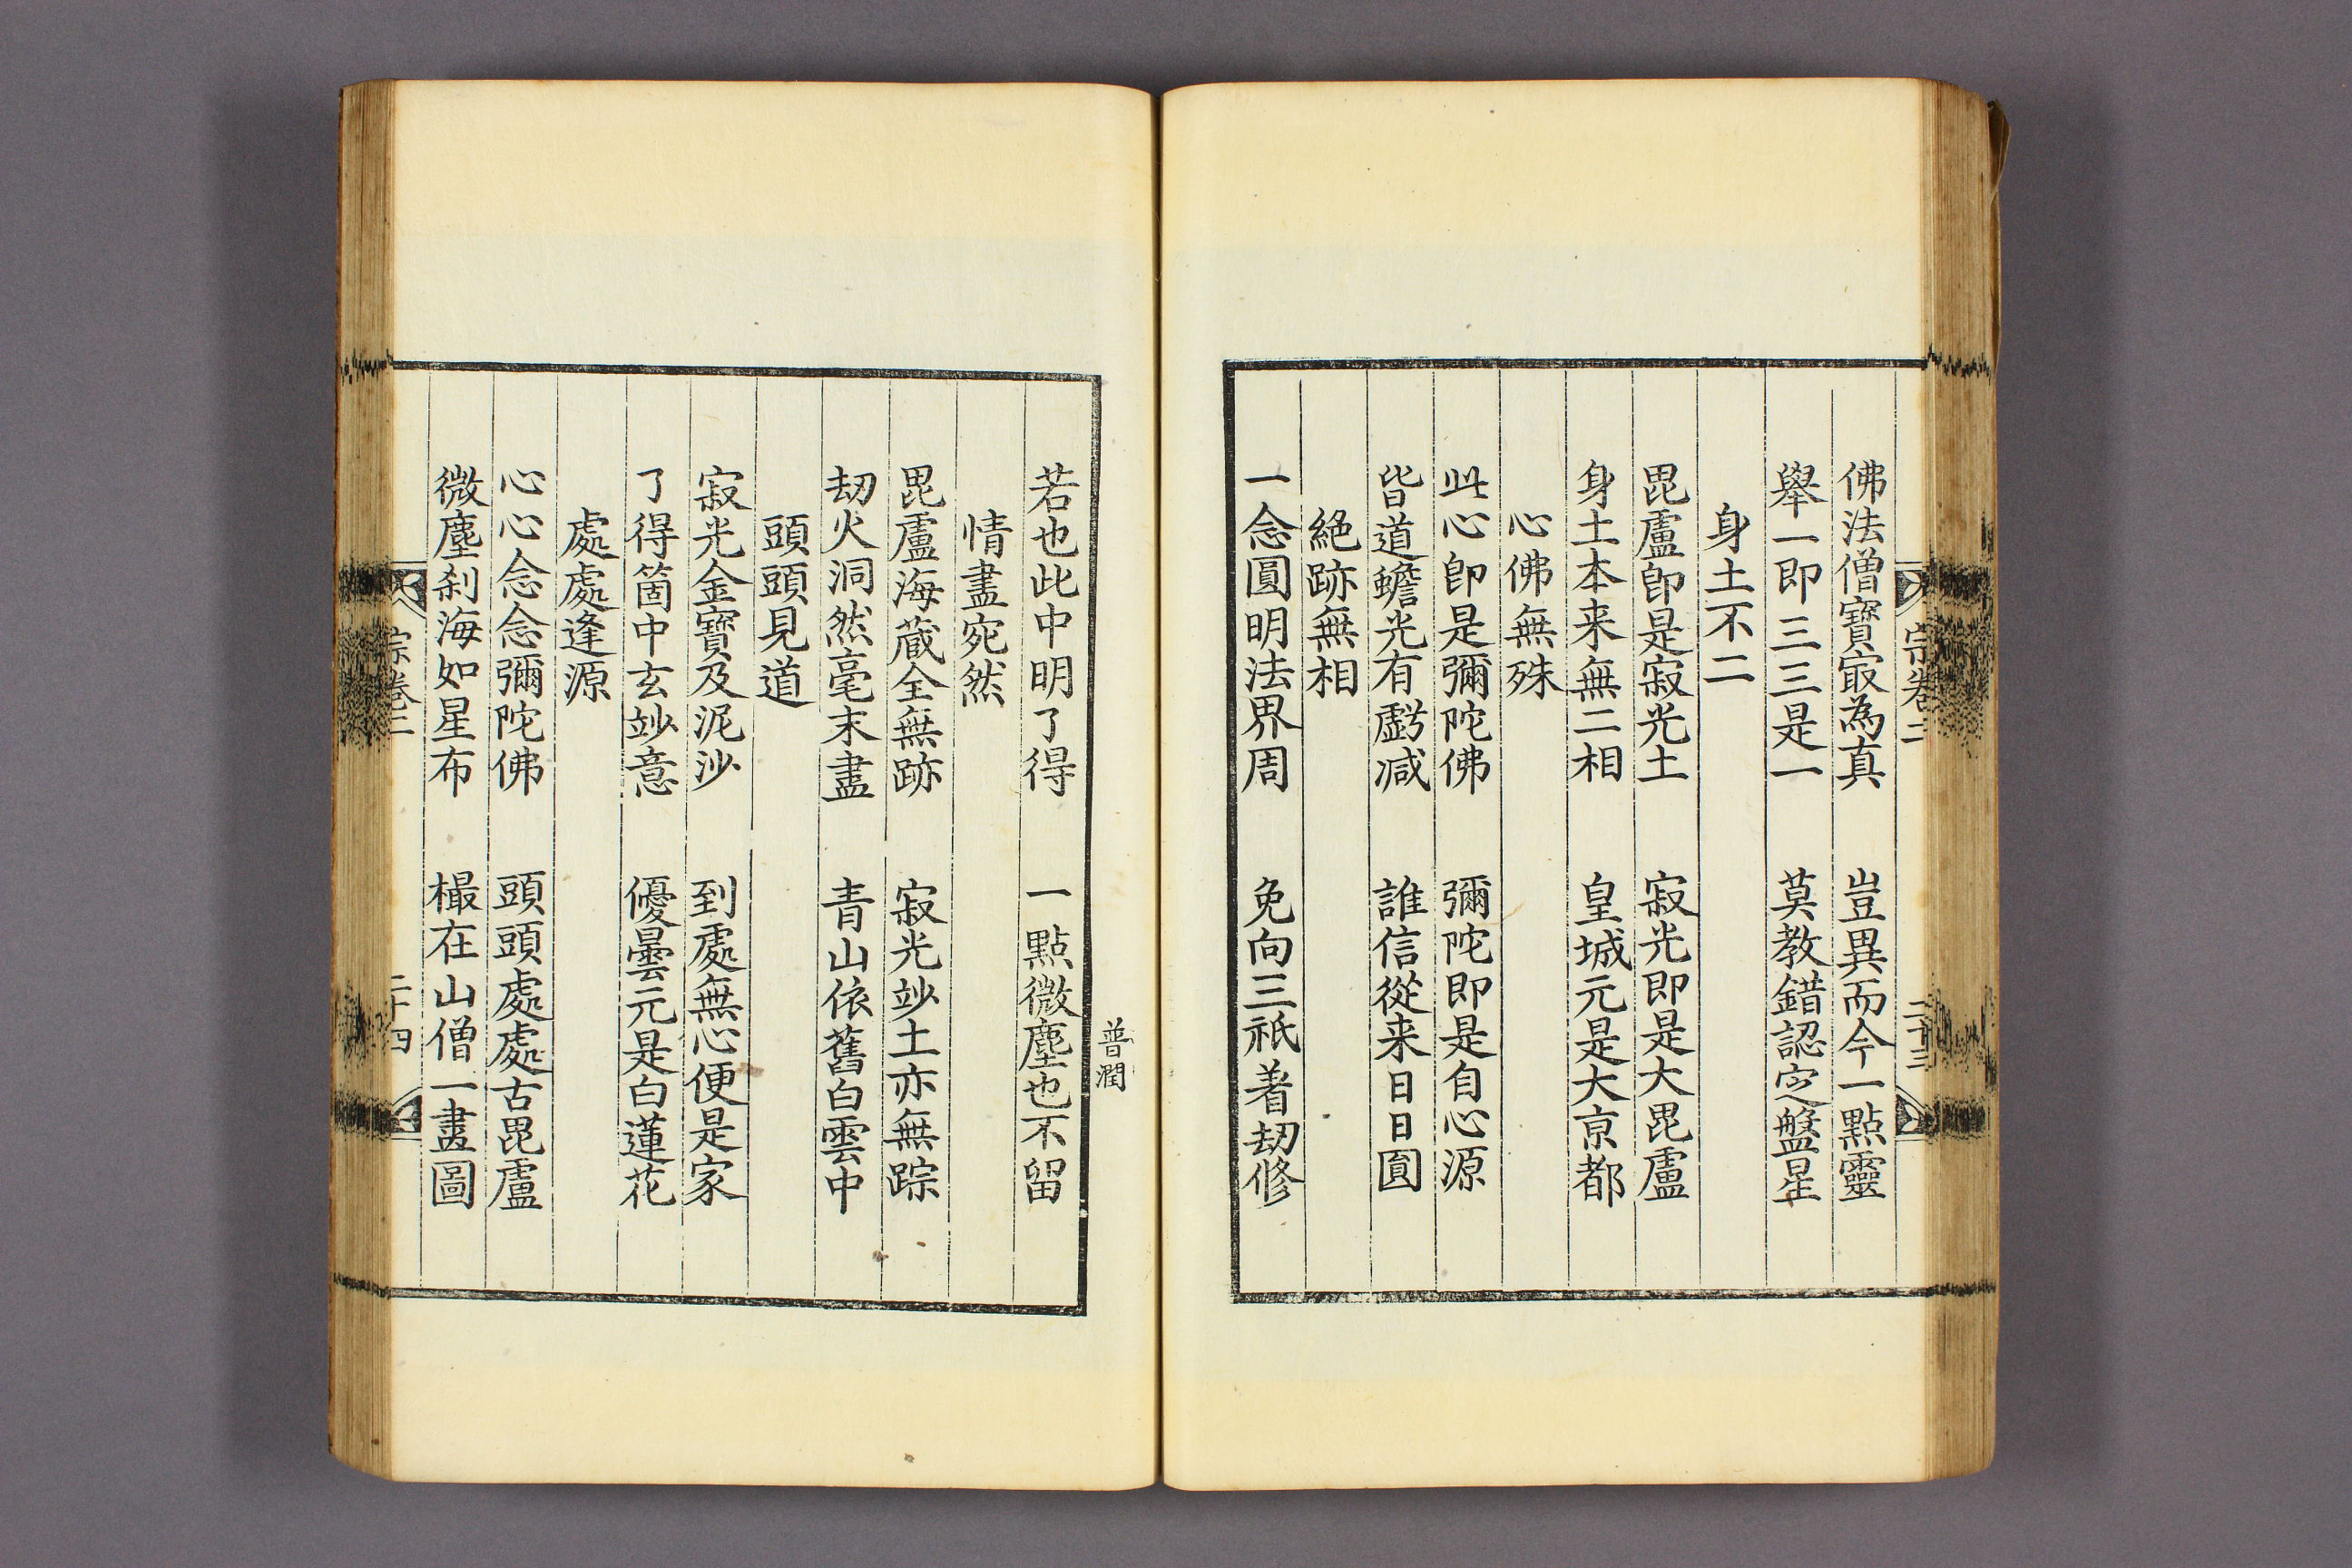 宗卷二
二十三
佛法僧寶㝡為真　豈異而今一點靈
舉一即三三是一　莫教錯認定盤星
身土不二
毘盧卽是寂光土　寂光即是大毘盧
身土本来無二相　皇城元是大亰都
心佛無殊
此心卽是彌陀佛　彌陀即是自心源
皆道蟾光有虧减　誰信從来日日圎
絕跡無相
一念圓明法界周　免向三祇着刧修
若也此中明了得　一點微塵也不留
普潤
情盡宛然
毘盧海蔵全無跡　寂光竗土亦無踪
刧火洞然毫末盡　青山依舊白雲中
頭頭見道
寂光金寶及泥沙　到處無心便是家
了得箇中玄竗意　優曇元是白蓮花
處處逢源
心心念念彌陀佛　頭頭處處古毘盧
微塵刹海如星布　樶在山僧一畫圖
宗卷二
二十四